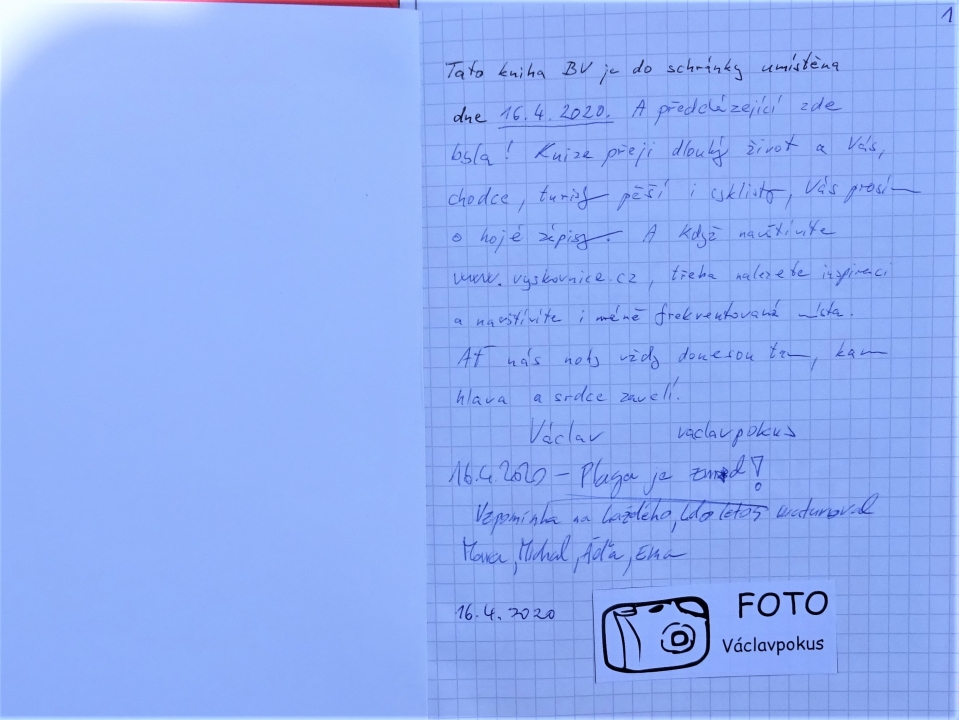 1
Tato kniha BV je do schránky umístěna
dne 16.4.2020. A předcházející zde
byla! Knize přeji dlouhý život a Vás,
chodce, turisty pěší i cyklisty, Vás prosím
o hojé zápisy. A když navštívíte
www.vyskovnice.cz, třeba naleznete inspiraci
a navštívíte i méně frekventovaná místa.
Ať nás nohy vždy donesou tam, kam
hlava a srdce zavelí.
Václav vaclavpokus
16.4.2020 – Plaga je zmrd!
Vzpomínka na každého, kdo letos maturoval
Michal, Áďa, Ema
16.4.2020
FOTO
Václavpokus